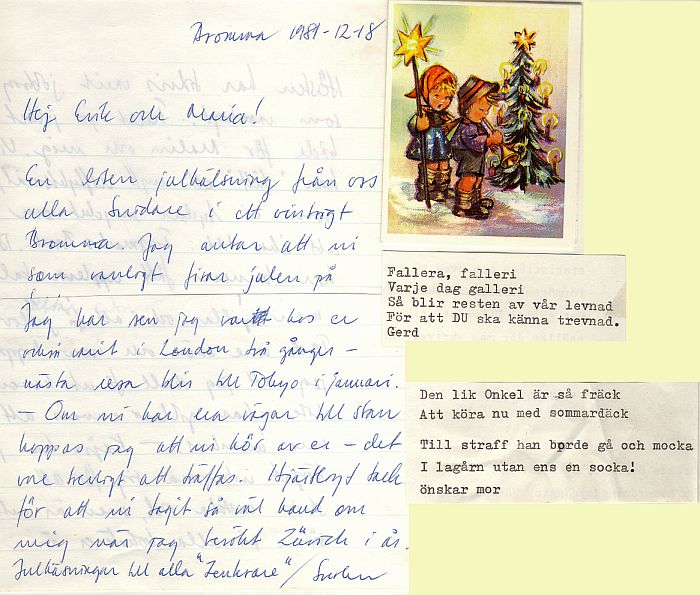 Bromma 1981-12-18
Hej Erik och Maria!
En liten julhälsning från oss
alla Snidare i ett vintrigt
Bromma. Jag antar att ni
som vanligt firar julen på
Jag har sen jag varit hos er
också varit i London två gånger –
nästa resa blir till Tokyo i januari.
– Om ni har era vägar till stan
hoppas jag – att ni hör av er – det
vore trevligt att träffas. Hjärtligt tack
för att ni tagit så väl hand om
mig när jag besökt Zürich i år.
Julhälsningar till alla
Fallera, falleri
Varje dag galleri
Så blir resten av vår levnad
För att DU ska känna trevnad.
Gerd
Den lik Onkel är så fräck
Att köra nu med sommardäck
Till straff han borde gå och mocka
I lagårn utan ens en socka!
önskar mor